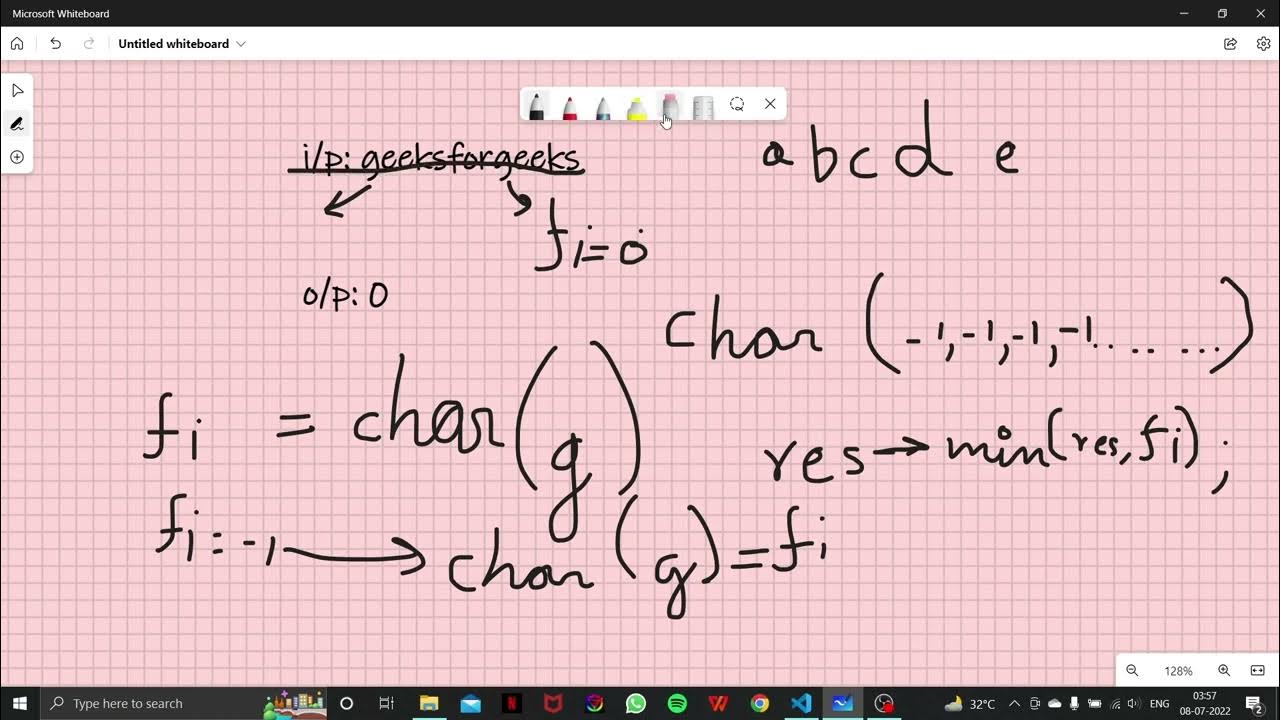 Microsoft Whiteboard
Untitled whiteboard
i/p: geeksforgeeks
a b c d e
fi=0
o/p: 0
char (-1,-1,-1,-1.. .. ...)
fi = char(g)
res→min(res,fi);
fi=-1→char(g)=fi
128%
Type here to search
32°C
ENG
03:57
08-07-2022
2